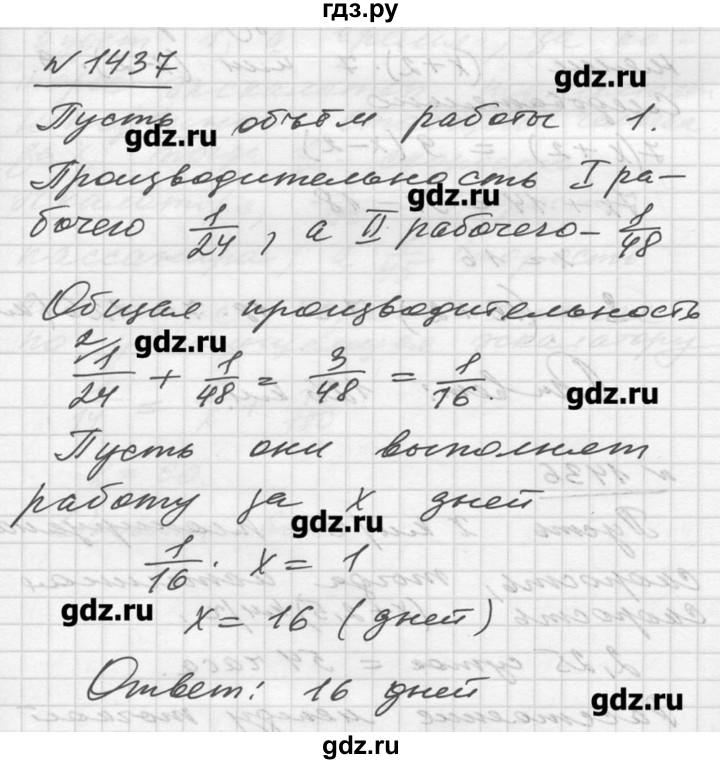 гдз.ру
№ 1437
gdz.ru
Пусть объём работы 1.
gdz.ru
Производительность I ра-
gdz.ru
бочего 1/24, а II рабочего – 1/48
Общая производительность
gdz.ru
2\1/24 + 1/48 = 3/48 = 1/16.
gdz.ru
Пусть они выполнят
работу за x дней
gdz.ru
1/16 · x = 1
gdz.ru
x = 16 (дней)
Ответ: 16 дней
gdz.ru
gdz.ru